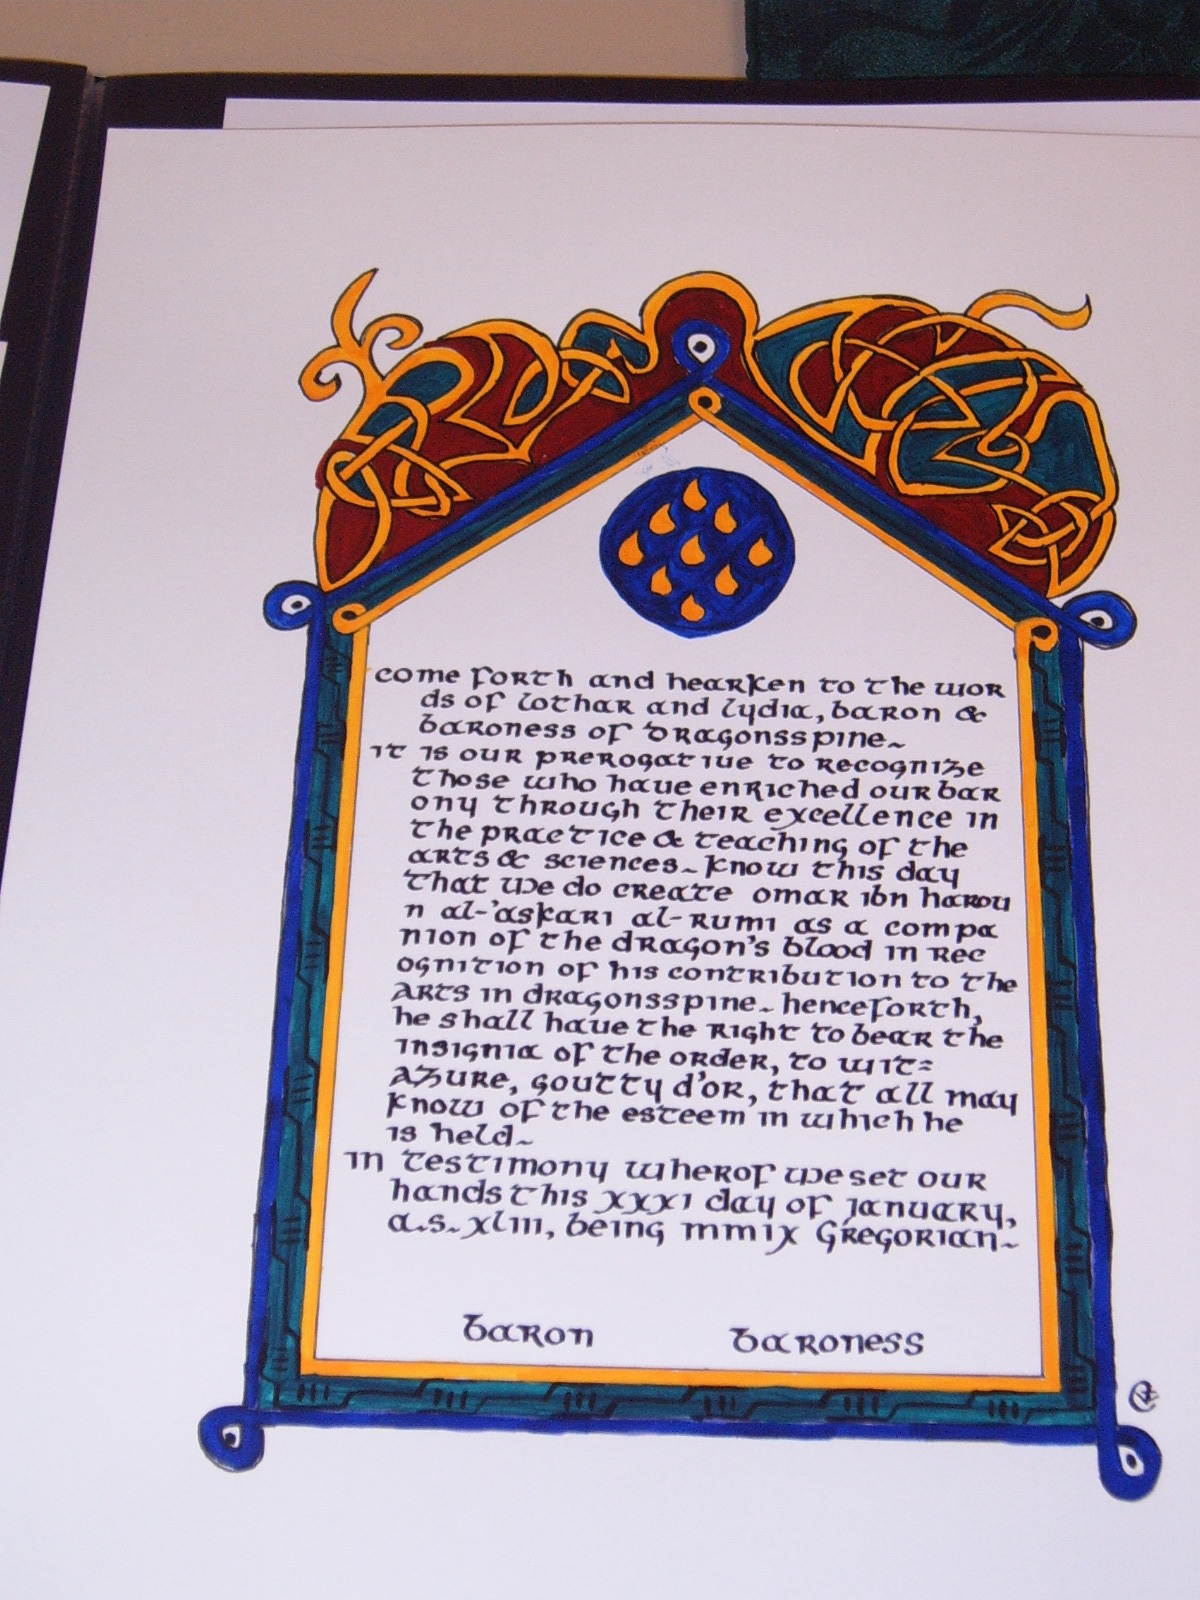 come forth and hearken to the wor
ds of lothar and lydia, baron &
baroness of dragonsspine~
it is our prerogative to recognize
those who have enriched our bar
ony through their excellence in
the practice & teaching of the
arts & sciences~ know this day
that we do create omar ibn harou
n al-'askari al-rumi as a compa
nion of the dragon's blood in rec
ognition of his contribution to the
arts in dragonsspine~ henceforth,
he shall have the right to bear the
insignia of the order, to wit=
azure, goutty d'or, that all may
know of the esteem in which he
is held~
in testimony wherof we set our
hands this xxxi day of january,
a.s. xliii, being mmix gregorian~
baron baroness